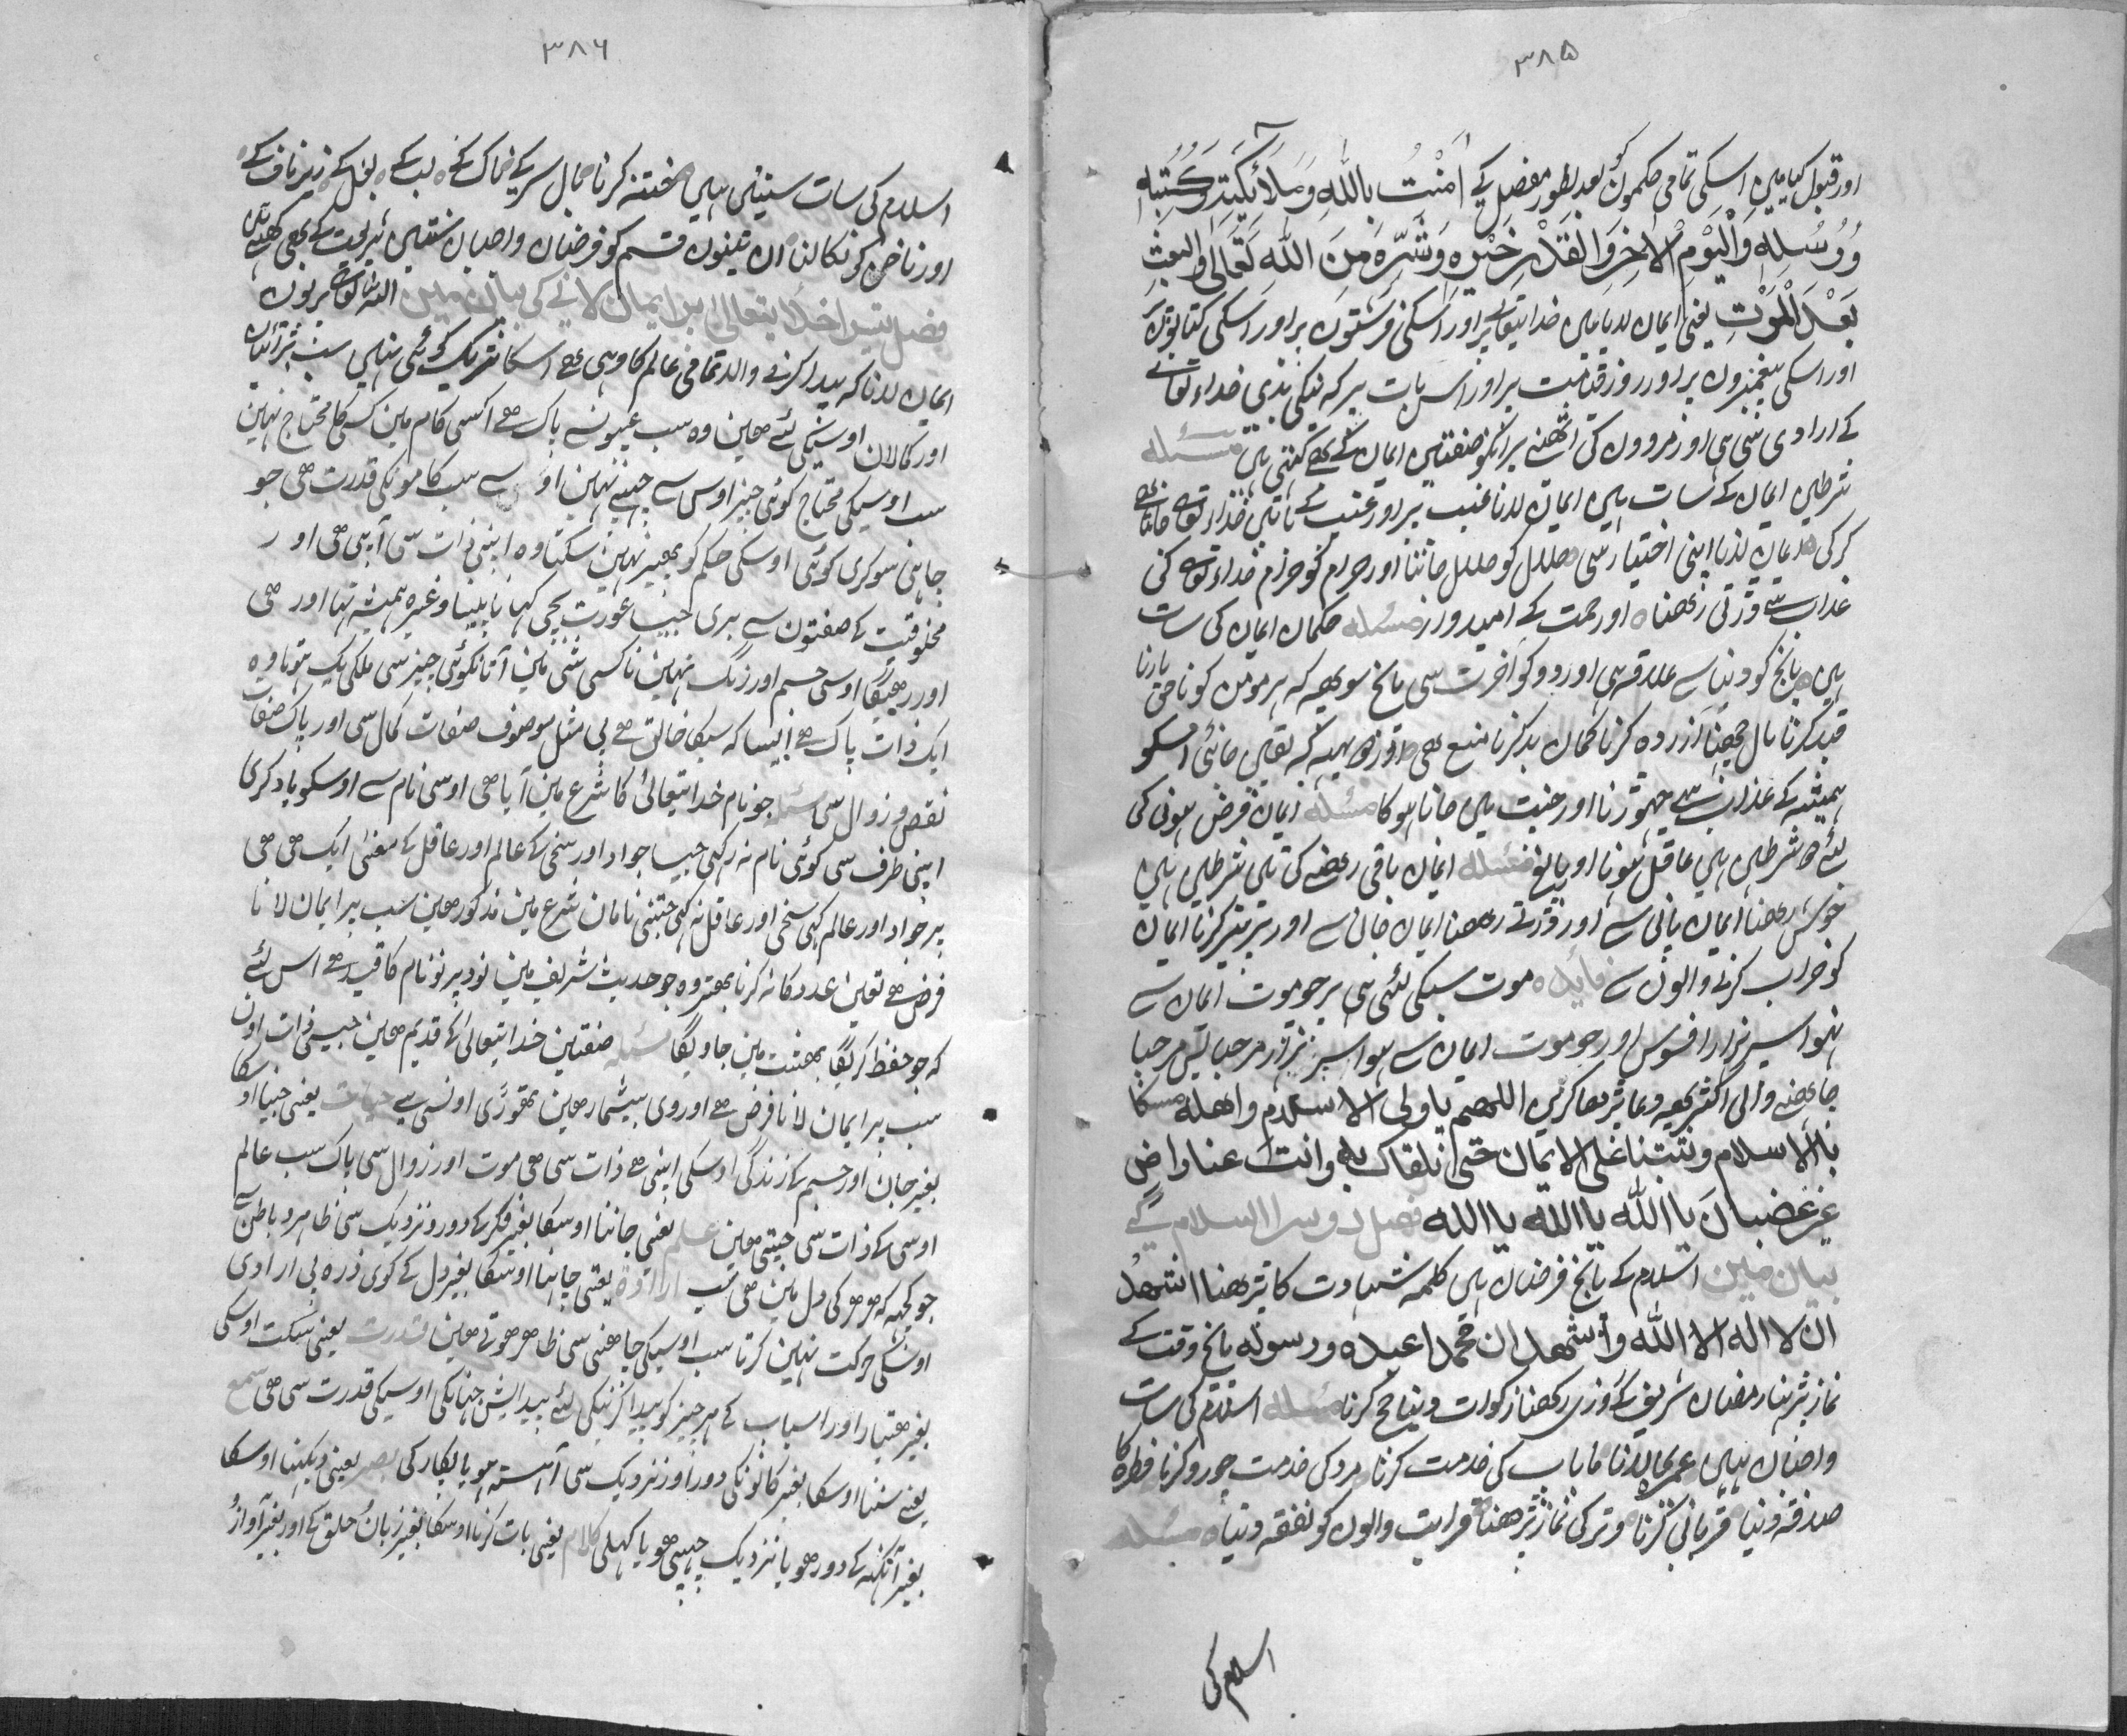 ۳۸۵
اور قبول کیا میں اسکی تمامی حکموں کو بعد بطور مفصل کے اٰمَنْتُ بِاللّٰہِ وَمَلَائِکَتِہِ وَکُتُبِہِ
وَرُسُلِہِ وَالْیَوْمِ الْاٰخِرِ وَالْقَدْرِ خَیْرِہِ وَشَرِّہِ مِنَ اللّٰہِ تَعَالٰی وَالْبَعْثِ
بَعْدَ الْمَوْتِ یعنی ایمان لایا میں خدایتعالے پر اور اسکی فرشتوں پر اور اسکی کتابوں پر
اور اسکی پیغمبروں پر اور روز قیامت پر اور اس بات پر کہ نیکی بدی خداے تعالے
کے ارادی سی ہی اور مردوں کی اٹھنے پر انکو صفتیں ایمان کے بھی کہتی ہیں مسئلہ
شرطیں ایمان کے سات ہیں ایمان لانا غیب پر اور غیب کے باتیں خداے تعالے جانتا ہے
کرکی ایمان لانا اپنی اختیار سی حلال کو حلال جاننا اور حرام کو حرام خداے تعالے کی
عذاب سے ڈرتی رہنا اور رحمت کے امیدوار مسئلہ حکمان ایمان کی سات
ہیں پانچ کو دنیا سے علاقہ ہی اور دو کو آخرت سی پانچ سو یھہ کہ ہر مومن کو ناحق مارنا
قید کرنا مال چھینا آزردہ کرنا گمان بد کرنا منع ہی اور دو یھہ کہ یقین جانئی اسکو
ہمیشہ کے عذاب سے چھوڑنا اور جنت میں جانا ہوگا مسئلہ ایمان فرض ہونی کی
لئے دو شرطیں ہیں عاقل ہونا اور بالغ مسئلہ ایمان باقی رہنے کی تین شرطیں ہیں
خوش رہنا ایمان پانی سے اور ڈرتے رہنا ایمان جانی سے اور پرہیز کرنا ایمان
کو خراب کرنے والوں سے فایدہ موت سبکی لئی ہی پر جو موت ایمان سے
نہو اسپر ہزار افسوس اور جو موت ایمان سے ہو اسپر ہزار مرحبا پس مرحبا
چاہنے والی اکثر یھہ دعا پڑھا کریں اللھم یا ولی الاسلام واھلہ مسکنا
بالاسلام وثبتنا علی الایمان حتی نلقاک بہ وانت عنا راض
غیر غضبان یا اللہ یا اللہ یا اللہ فصل دوسرا اسلام کے
بیان میں اسلام کے پانچ فرضاں ہیں کلمہ شہادت کا پڑھنا اشھد
ان لا الہ الا اللہ واشھد ان محمدا عبدہ ورسولہ پانچ وقت کے
نماز پڑھنا رمضان شریف کے روزی رکھنا زکوات دینا حج کرنا مسئلہ اسلام کی سات
واجباں ہیں عمرہ بجا لانا ماباپ کی خدمت کرنا مرد کی خدمت جورو کرنا فطرہ کا
صدقہ دینا قربانی کرنا وتر کی نماز پڑھنا قرابت والوں کو نفقہ دینا مسئلہ
اسلام کی
۳۸۶
اسلام کی سات سنتیں ہیں ختنہ کرنا بال سر کے ناک کے لب کے بغل کے زیر ناف کے
اور ناخن کو نکالنا ان تینوں قسم کو فرضاں واجباں سنتیں شریعت کے بھی کہتے ہیں
فصل تیسرا خدایتعالی پر ایمان لانے کی بیان میں اللہ تعالے پر یوں
ایمان لانا کہ پیدا کرنے والا تمامی عالم کا وہی ہے اسکا شریک کوئی نہیں سب بزرگیاں
اور کمالاں اوسیکی لئے ہیں وہ سب عیبوں سے پاک ہے کسی کام میں کسی کا محتاج نہین
سب اوسیکی محتاج کوئی چیز اوس سے چھپے نہین اوسے سب کامونکی قدرت ہی جو
چاہی سو کری کوئی اوسکی حکم کو پھیر نہین سکتا وہ اپنی ذات سی آپ ہی ہی اور
مخلوقیت کے صفتوں سے بری جیسا عورت بچی کھانا پینا وغیرہ ہمیشہ تھا اور ہی
اور رہیگا اوسی جسم اور رنگ نہین نا کسی شئی مین آتا نکوئی چیز سی ملکی یک ہوتا وہ
ایک ذات پاک ہے ایسا کہ سبکا خالق ہے بی مثل موصوف صفات کمال سی اور پاک صفات
نقص و زوال سی مسئلہ جو نام خدایتعالیٰ کا شرع مین آیا ہی اوسی نام سے اوسکو یاد کری
اپنی طرف سی کوئی نام نہ رکھی جیسا جواد اور سخی کے عالم اور عاقل کے معنی ایک ہی ہی
پر جواد اور عالم کہی سخی اور عاقل نہ کہی جتنی ناماں شرع مین مذکور ہین سب پر ایمان لانا
فرض ہے تعین عدد کا نہ کرنا بہتر وہ جو حدیث شریف مین نود پر نو نام کا قید ہے اس لئے
کہ جو حفظ کریگا بھشت مین جاویگا مسئلہ صفتین خدایتعالیٰ کے قدیم ہین جیسے ذات اون
سب پر ایمان لانا فرض ہے اور وی بیشمار ہین تھوڑی اونسی یے حیات یعنی جینا اوسکا
بغیر جان اور جسم کے زندگی اوسکی اپنی ہے ذات سی ہی موت اور زوال سی پاک سب عالم
اوسی کے ذات سی جیتی ہین علم یعنی جاننا اوسکا بغیر فکر کے دور و نزدیک سی ظاہر و باطن سے
جو کچہہ کہ ہر ہر کی دل مین ہی سب ارادہ یعنی چاہنا اوسکا بغیر دل کے کوی ذرہ بی ارادی
اوسکی حرکت نہین کرتا سب اوسیکی چاہنی سی ظاہر ہوتے ہین قدرت یعنی سکت اوسکی
بغیر ہتیار اور اسباب کے ہر چیز کو پیدا کرنیکی لئے پیدایش جہانکی اوسیکی قدرت سی ہی سمع
یعنے سننا اوسکا بغیر کانونکی دور اور نزدیک سی آہستہ ہو یا پکار کی بصر یعنی دیکہنا اوسکا
بغیر آنکہہ کے دور ہو یا نزدیک چھپی ہو یا کہلی کلام یعنی بات کرنا اوسکا بغیر زبان حلق کے اور بغیر آواز